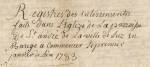 Registres des enterrements
faits dans l'Eglise de la paroisse
de St André de la ville de Luz en
Barege a Commencer le premier
janvier de l'an 1783